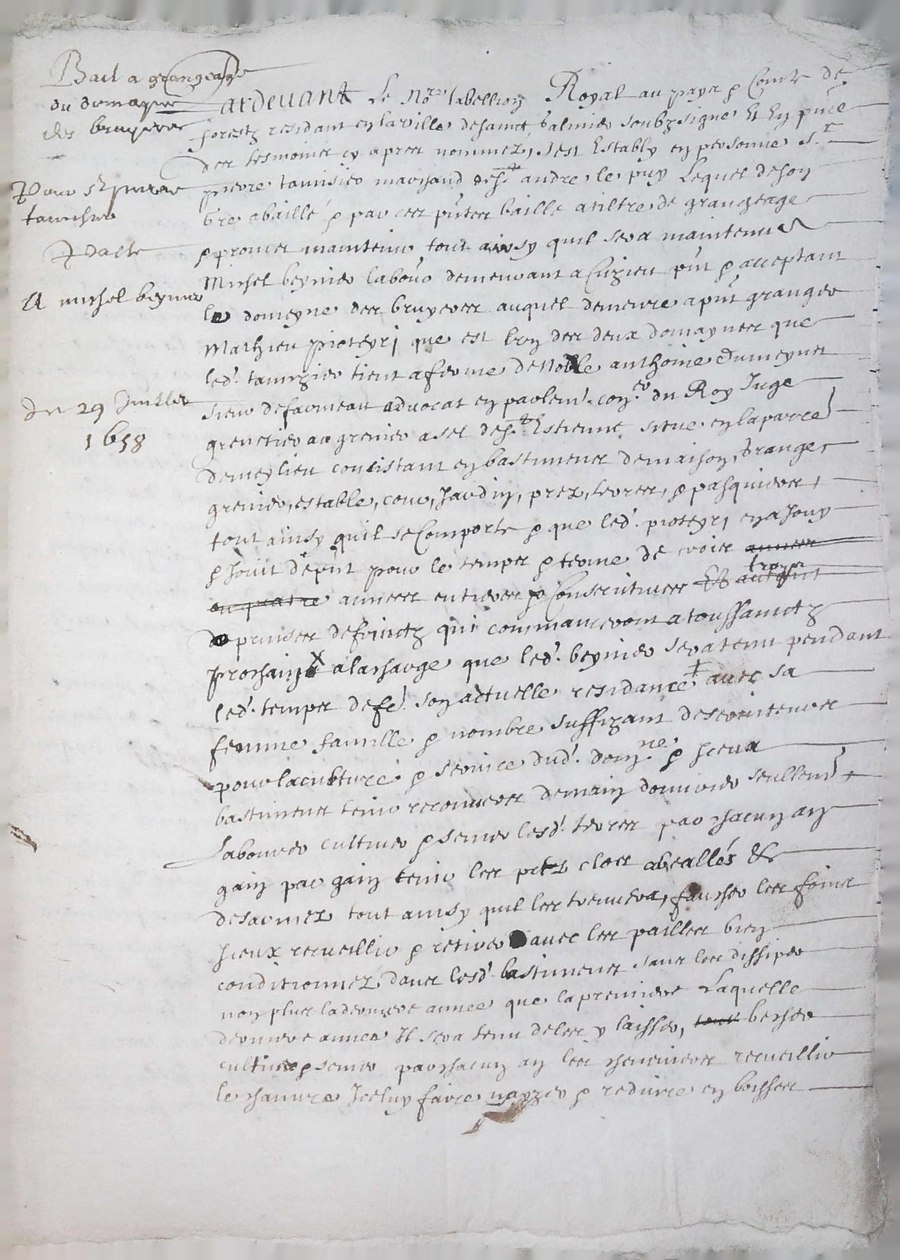 Bail a grangeage
du domayne
des bruyeres
Pour Sr pierre
tamisier
A michel beynier
du 29 Juillet
1658
Pardevant Le Nore tabellion Royal au pays & Comte de
forestz residant en la ville de sainct galmier soubzsigne Et En pnce
des tesmoins cy apres nommez, s'est Estably en personne Sr
pierre tamisier marchand de St andre le puy Lequel de son
gre a baillé & par ces pntes baille a tiltre de grangeage
& promet maintenir tout ainsy quil sera maintenu A
Michel beynier labour demeurant a Cuzieu pnt & acceptant
le domeyne des bruyeres auquel demeure a pnt granger
Mathieu proteyri que est l'un des deux domaynes que
led. tamizier tient a ferme de Noble anthoine dumeynet
sieur de advocat en parlemt conser du Roy Juge
grenetier au grenier a sel de St Estienne sieue en la parce
de meylieu consistant en bastimens de maison, grange,
grenier, estable, cour, Jardin, prez, terres, & pasquiers,
tout ainsy quil se Comporte & que led. proteyri en a Jouy
& Jouit a pnt pour le temps & terme de trois annees
ou quatre annees entieres & Consecutives Et autant troys
de prinses de fruictz qui commanceront a toussainctz
prochain x a la charge que led. beynier sera tenu pendant
led. temps de fe. son actuelle residance + avec sa
femme famille & nombre suffizant de
pour la culture & service dud. domne & Iceux
bastimens tenir recouvers de main d'ouvrier seullemt +
Labourer cultiver & semer lesd. terres par chacun an
gain par gain tenir les prez clos abeallés &
desarniez tout ainsy quil les treuvera, faucher les foins
Iceux recueillir & retirer avec les pailles bien
conditionnez dans lesd. bastimens sans les dissiper
non plus la derniere annee que la premiere Laquelle
derniere annee Il sera tenu de les y laisser, tout becher
cultiver & semer par chacun an les chenevieres recueillir
le chanvre Iceluy faire nayzer & reduire en